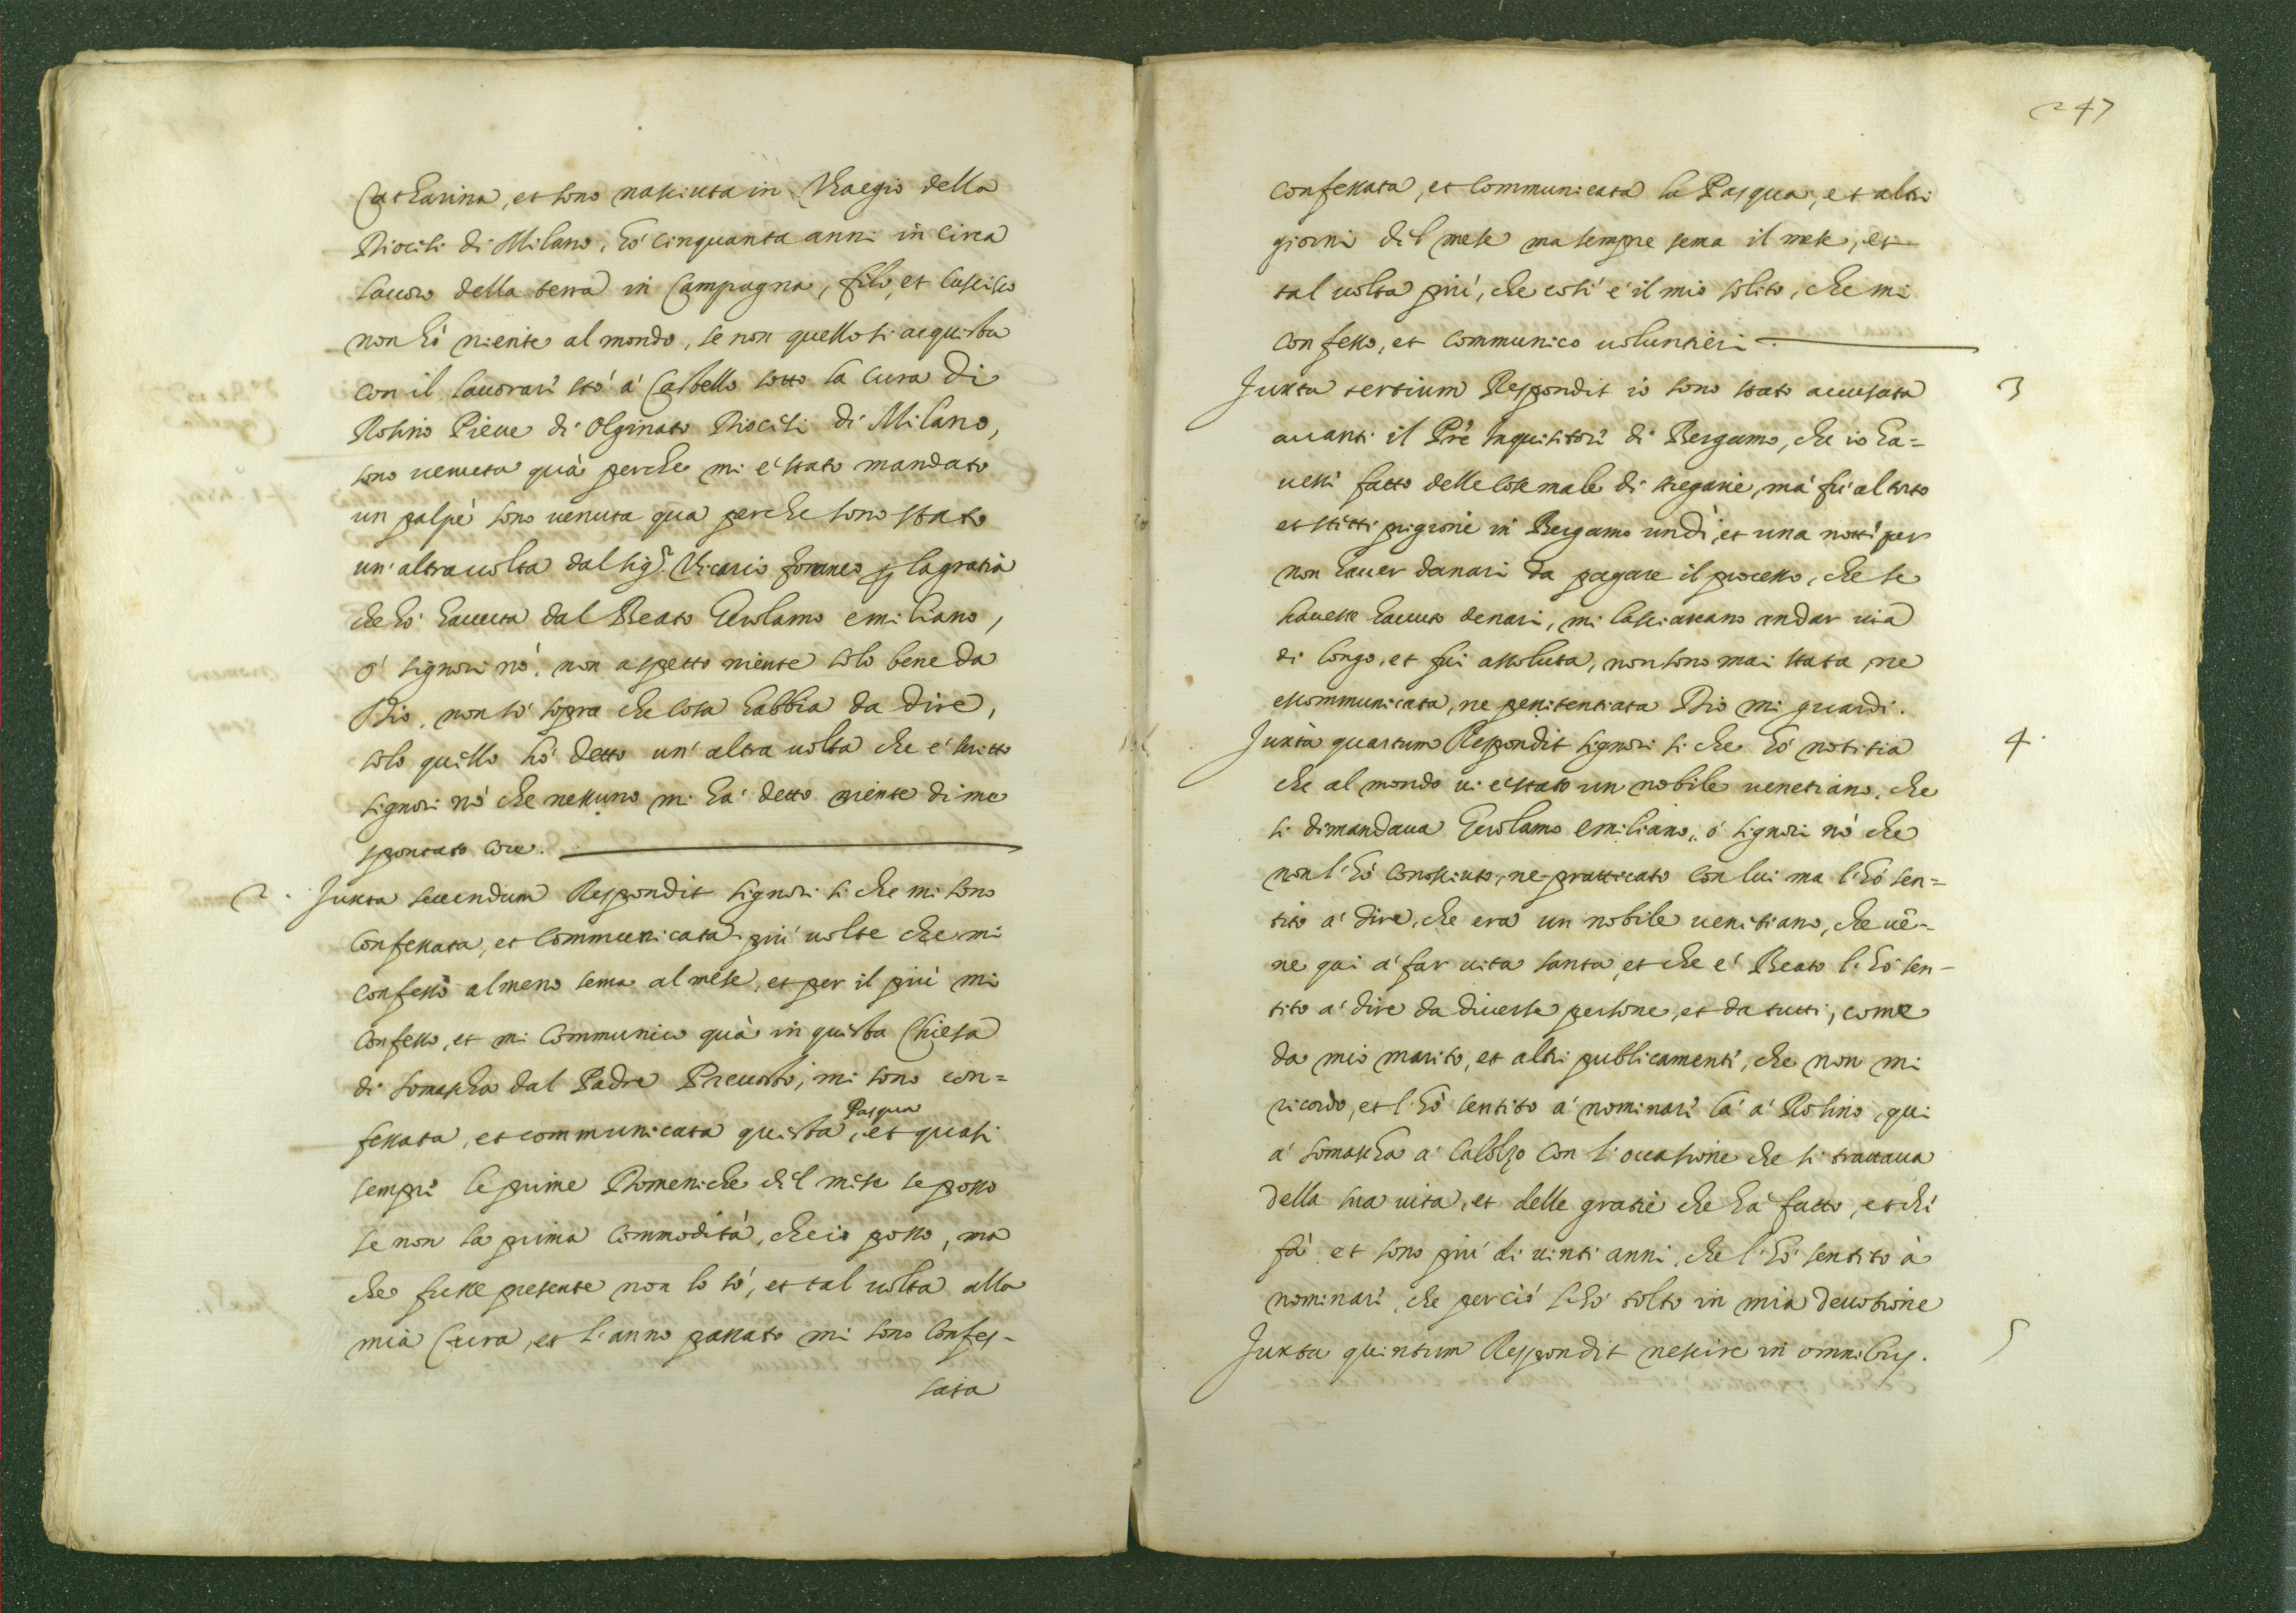 Catharina, et sono nasciuta in Viaegio della
Diocesi di Milano, hò cinquanta anni in circa
lauoro della terra in Campagna, filo, et cuscisco
non hò niente al mondo, se non quello si acquista
con il lauorari stò à Castello sotto la cura di
Rosino Pieue di Olginato Diocesi di Milano,
sono uenuta quà perche mi è stato mandato
un palpè sono uenuta qua perche sono stato
un'altra uolta dal sigr. Vicario foraneo p la gratia
che hò hauuta dal Beato Gerolamo emiliano,
ò signori nò, non aspetto niente solo bene da
Dio, non sò sopra che cosa habbia da dire,
solo quello hò detto un'altra uolta che è scritto
signori nò che nessuno mi hà detto niente di me
spontato core.
2. Juxta secundum Respondit signori si che mi sono
confessata, et communicata più uolte che mi
confesso almeno sema al mese, et per il più mi
confesso, et mi communico quà in questa Chiesa
di somascha dal Padre Preuosto, mi sono con=
fessata, et communicata questa Pasqua, et quasi
sempri le prime Domeniche del mese se posso
se non la prima commodità, che io posso, ma
che fusse presente non lo sò, et tal uolta alla
mia Cura, et l'anno passato mi sono confes-
sata
247
confessata, et communicata la Pasqua, et altri
giorni del mese ma sempre sema il mese, et
tal uolta più, che così è il mio solito, che mi
confesso, et communico uoluntieri
Juxta tertium Respondit io sono stato accusata 3
auanti il Prè Inquisitori di Bergamo, che io ha=
uessi fatto delle cose male di stregarie, mà fù al torto
et stetti prigione in Bergamo un dì, et una notti per
non hauer danari da pagare il processo, che se
hauesse hauuto denari, mi lasciauano andar uia
di longo, et fui assoluta, non sono mai stata, ne
escommunicata, ne penitentiata Dio mi guardi.
Juxta quartum Respondit signori si che hò notitia 4.
che al mondo ui è stato un nobile uenetiano, che
si dimandaua Gerolamo emiliano, ò signori nò che
non l'hò conosciuto, ne pratticato con lui ma l'hò sen=
tito à dire, che era un nobile uenitiano, che uē=
ne qui à far uita santa, et che è Beato l'hò sen-
tito à dire da diuerse persone, et da tutti, come
da mio marito, et altri publicamenti, che non mi
ricordo, et l'hò sentito à nominari là à Rosino, qui
à somascha à Calolzo con l'occasione che si trattaua
della sua uita, et delle gratie che hà fatto, et chi
fà et sono più di uinti anni, che l'hò sentito à
nominari, che perciò l'hò tolto in mia deuotione
Juxta quintum Respondit nescire in omnibus. 5